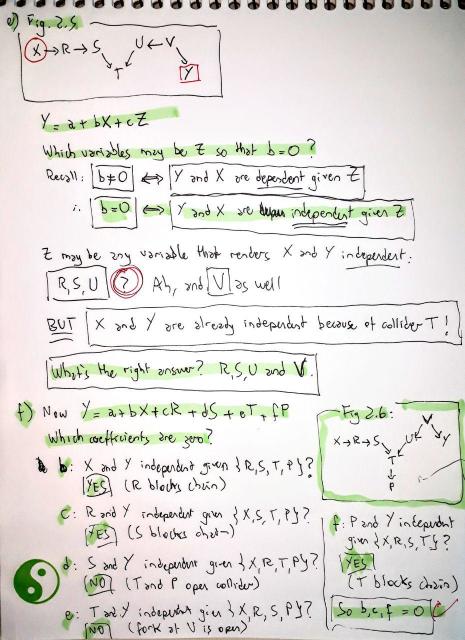 e) Fig. 2.5
X → R → S U ← V
T Y
Y = a + bX + cZ
Which variables may be Z so that b=0?
Recall: b≠0 ⟺ Y and X are dependent given Z
∴ b=0 ⟺ Y and X are independent given Z
Z may be any variable that renders X and Y independent:
R, S, U ? Ah, and V as well
BUT X and Y are already independent because of collider T!
What's the right answer? R, S, U and V.
f) Now Y = a + bX + cR + dS + eT + fP
Which coefficients are zero?
b: X and Y independent given {R, S, T, P}?
YES (R blocks chain)
c: R and Y independent given {X, S, T, P}?
YES (S blocks chain)
d: S and Y independent given {X, R, T, P}?
NO (T and P open collider)
e: T and Y independent given {X, R, S, P}?
NO (fork at V is open)
Fig 2.6:
V
X → R → S U Y
T
P
f: P and Y independent
given {X, R, S, T}?
YES
(T blocks chain)
So b, c, f = 0